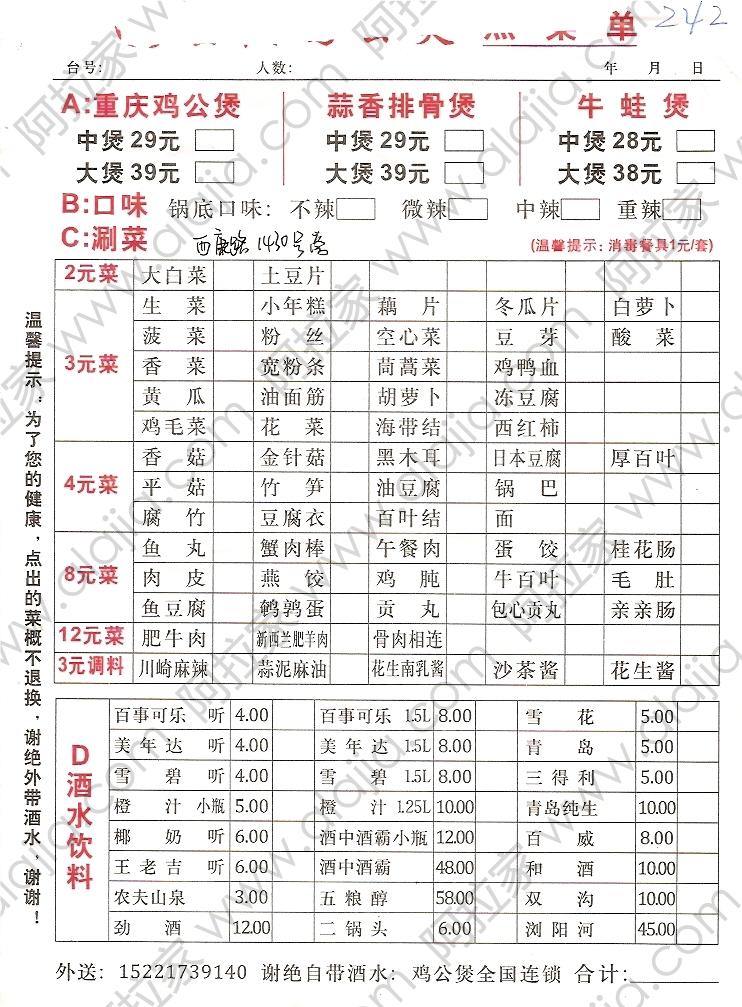 点菜单 242
台号: 人数: 年 月 日
A:重庆鸡公煲 蒜香排骨煲 牛蛙煲
中煲29元 中煲29元 中煲28元
大煲39元 大煲39元 大煲38元
B:口味 锅底口味: 不辣 微辣 中辣 重辣
C:涮菜 西康路1430号旁 (温馨提示:消毒餐具1元/套)
2元菜 大白菜 土豆片
3元菜
生菜 小年糕 藕片 冬瓜片 白萝卜
菠菜 粉丝 空心菜 豆芽 酸菜
香菜 宽粉条 茼蒿菜 鸡鸭血
黄瓜 油面筋 胡萝卜 冻豆腐
鸡毛菜 花菜 海带结 西红柿
4元菜
香菇 金针菇 黑木耳 日本豆腐 厚百叶
平菇 竹笋 油豆腐 锅巴
腐竹 豆腐衣 百叶结 面
8元菜
鱼丸 蟹肉棒 午餐肉 蛋饺 桂花肠
肉皮 燕饺 鸡肫 牛百叶 毛肚
鱼豆腐 鹌鹑蛋 贡丸 包心贡丸 亲亲肠
12元菜 肥牛肉 新西兰肥羊肉 骨肉相连
3元调料 川崎麻辣 蒜泥麻油 花生南乳酱 沙茶酱 花生酱
D酒水饮料
百事可乐 听 4.00 百事可乐 1.5L 8.00 雪花 5.00
美年达 听 4.00 美年达 1.5L 8.00 青岛 5.00
雪碧 听 4.00 雪碧 1.5L 8.00 三得利 5.00
橙汁 小瓶 5.00 橙汁 1.25L 10.00 青岛纯生 10.00
椰奶 听 6.00 酒中酒霸小瓶 12.00 百威 8.00
王老吉 听 6.00 酒中酒霸 48.00 和酒 10.00
农夫山泉 3.00 五粮醇 58.00 双沟 10.00
劲酒 12.00 二锅头 6.00 浏阳河 45.00
外送: 15221739140 谢绝自带酒水: 鸡公煲全国连锁 合计:
温馨提示:为了您的健康,点出的菜概不退换,谢绝外带酒水,谢谢!
阿拉家 www.alajia.com